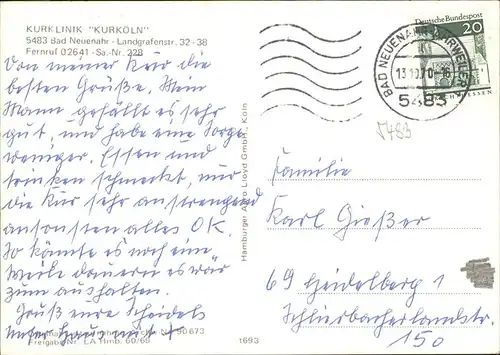 KURKLINIK "KURKÖLN"
5483 Bad Neuenahr - Landgrafenstr. 32-38
Fernruf 02641 - Sa.-Nr. 228
Von meiner Kur die
besten Grüße. Mein
Mann gefällt es sehr
gut, und habe eine Sorge
weniger. Essen und
trinken schmeckt, nur
die Kur sehr anstrengend
ansonsten alles OK.
So könnte es noch eine
Weile dauern es wär
zum aushalten.
Gruß eure Scheidels
90673
Freigabe Nr. LA Hmb. 60/69
1693
Hamburger Aero-Lloyd GmbH., Köln
Deutsche Bundespost
20
BAD NEUENAHR-AHRWEILER
13.10.70-16
5483
5483
Familie
Karl Gießer
69 Heidelberg 1
Schlierbacherlandstr.
150